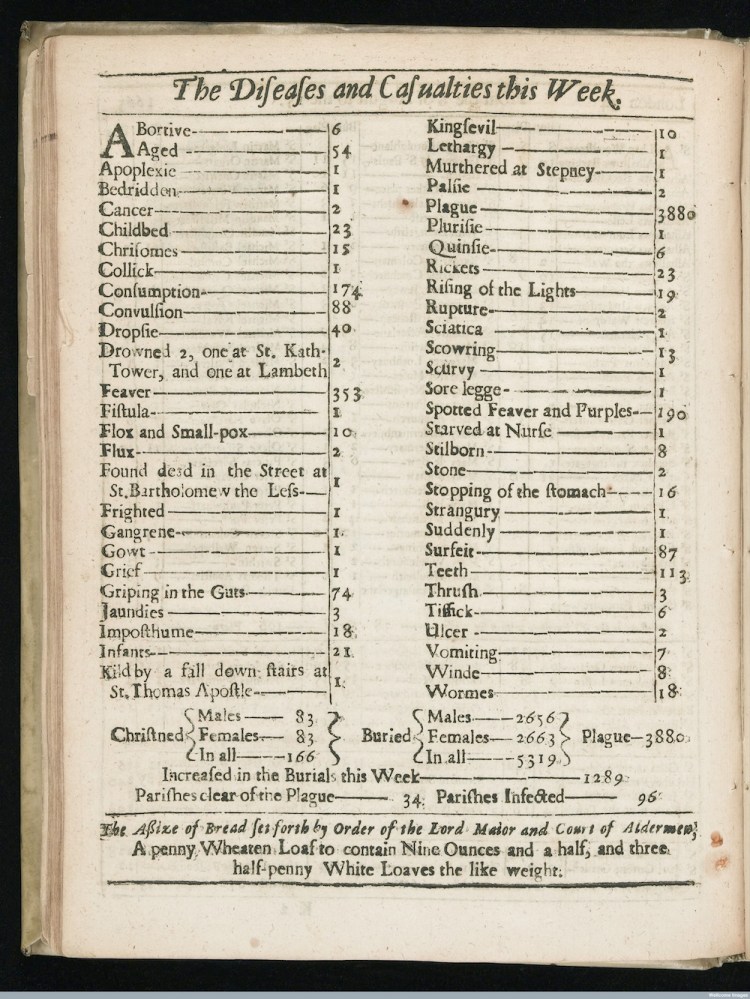 The Diſeaſes and Caſualties this Week.
ABortive 6
Aged 54
Apoplexie 1
Bedridden 1
Cancer 2
Childbed 23
Chriſomes 15
Collick 1
Conſumption 174
Convulſion 88
Dropſie 40
Drowned 2, one at St. Kath-
Tower, and one at Lambeth 2
Feaver 353
Fiſtula 1
Flox and Small-pox 10
Flux 2
Found dead in the Street at
St. Bartholomew the Leſs 1
Frighted 1
Gangrene 1
Gowt 1
Grief 1
Griping in the Guts 74
Jaundies 3
Impoſthume 18
Infants 21
Kild by a fall down ſtairs at
St. Thomas Apoſtle 1
Kingſevil 10
Lethargy 1
Murthered at Stepney 1
Palſie 2
Plague 3880
Pluriſie 1
Quinſie 6
Rickets 23
Riſing of the Lights 19
Rupture 2
Sciatica 1
Scowring 13
Scurvy 1
Sore legge 1
Spotted Feaver and Purples 190
Starved at Nurſe 1
Stilborn 8
Stone 2
Stopping of the ſtomach 16
Strangury 1
Suddenly 1
Surfeit 87
Teeth 113
Thruſh 3
Tiſſick 6
Ulcer 2
Vomiting 7
Winde 8
Wormes 18
Chriſtned
Males 83
Females 83
In all 166
Buried
Males 2656
Females 2663
In all 5319
Plague 3880
Increaſed in the Burials this Week 1289
Pariſhes clear of the Plague 34 Pariſhes Infected 96
The Aſsize of Bread ſet forth by Order of the Lord Maior and Court of Aldermen,
A penny Wheaten Loaf to contain Nine Ounces and a half, and three
half-penny White Loaves the like weight.
Wellcome Images